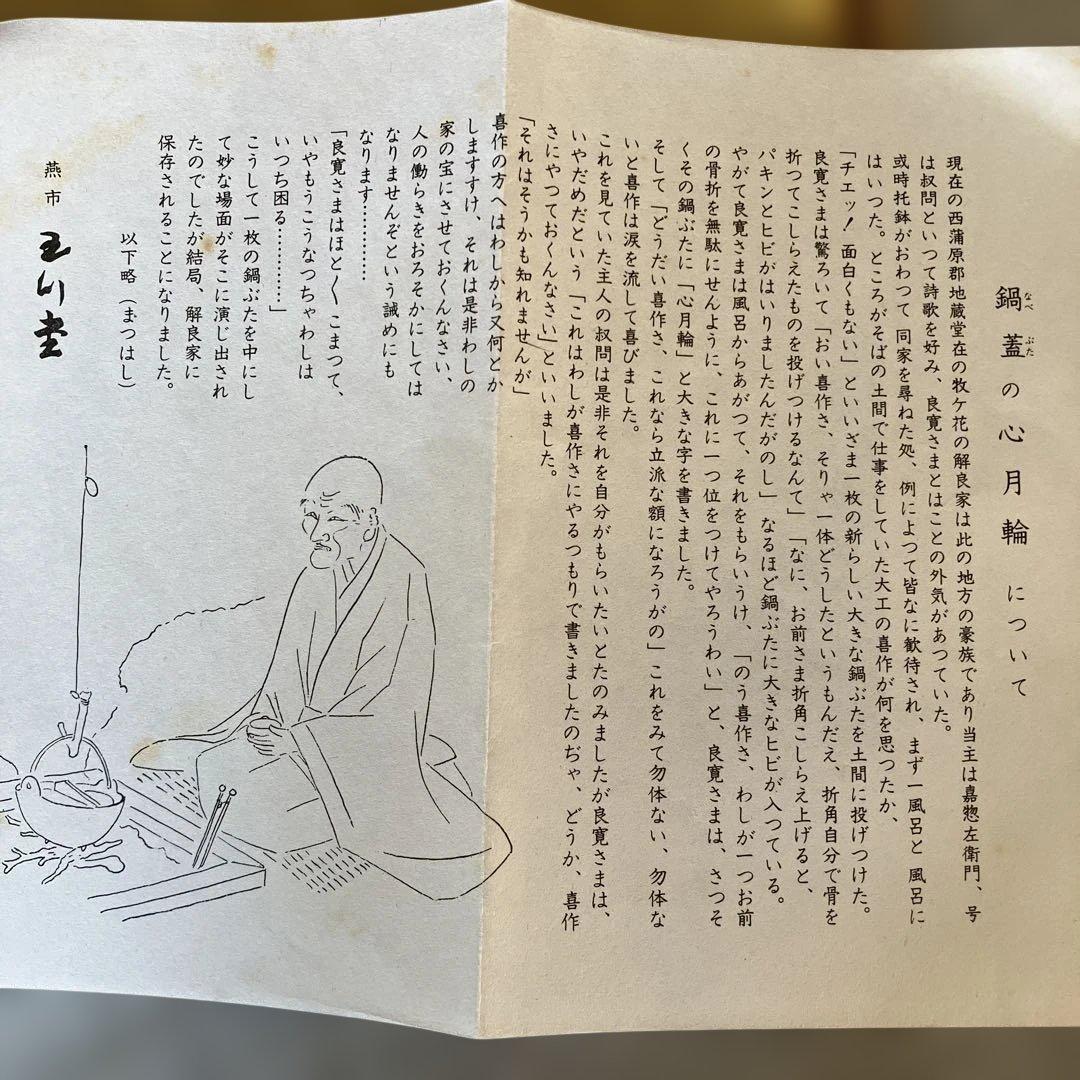 鍋蓋の心月輪について
なべ ぶた
現在の西蒲原郡地蔵堂在の牧ケ花の解良家は此の地方の豪族であり当主は嘉惣左衛門、号
は叔問といつて詩歌を好み、良寛さまとはことの外気があつていた。
或時托鉢がおわつて 同家を尋ねた処、例によつて皆なに歓待され、まず一風呂と 風呂に
はいつた。ところがそばの土間で仕事をしていた大工の喜作が何を思つたか、
「チエッ! 面白くもない」といいざま一枚の新らしい大きな鍋ぶたを土間に投げつけた。
良寛さまは驚ろいて「おい喜作さ、そりゃ一体どうしたというもんだえ、折角自分で骨を
折つてこしらえたものを投げつけるなんて」「なに、お前さま折角こしらえ上げると、
パキンとヒビがはいりましたんだがのし」 なるほど鍋ぶたに大きなヒビが入つている。
やがて良寛さまは風呂からあがつて、それをもらいうけ、「のう喜作さ、わしが一つお前
の骨折を無駄にせんように、これに一つ位をつけてやろうわい」と、良寛さまは、さつそ
くその鍋ぶたに「心月輪」と大きな字を書きました。
そして「どうだい喜作さ、これなら立派な額になろうがの」これをみて勿体ない、勿体な
いと喜作は涙を流して喜びました。
これを見ていた主人の叔問は是非それを自分がもらいたいとたのみましたが良寛さまは、
いやだめだという「これはわしが喜作さにやるつもりで書きましたのぢゃ、どうか、喜作
さにやつておくんなさい」といいました。
「それはそうかも知れませんが」
喜作の方へはわしから又何とか
しますすけ、それは是非わしの
家の宝にさせておくんなさい、
人の働らきをおろそかにしては
なりませんぞという誡めにも
なります…………
「良寛さまはほと〱こまつて、
いやもうこうなつちゃわしは
いつち困る…………」
こうして一枚の鍋ぶたを中にし
て妙な場面がそこに演じ出され
たのでしたが結局、解良家に
保存されることになりました。
以下略(まつはし)
燕市 玉川堂